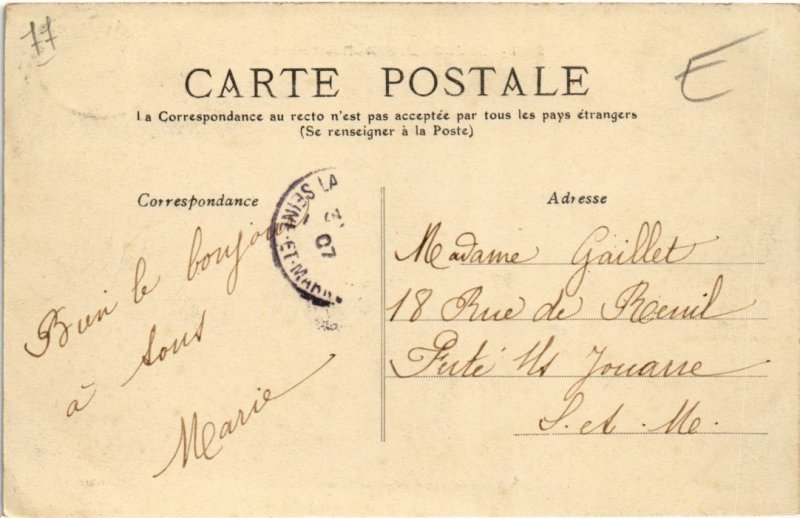 77
E
CARTE POSTALE
La Correspondance au recto n'est pas acceptée par tous les pays étrangers
(Se renseigner à la Poste)
Correspondance
Bien le bonjour
à tous
Marie
LA
SEINE-ET-MARNE
07
Adresse
Madame Gaillet
18 Rue de Reuil
Ferté s/s Jouarre
S. et M.